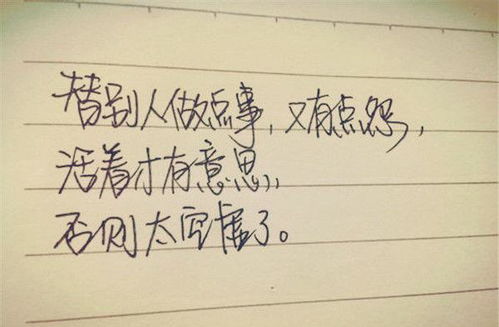 替别人做点事,又有点怨,
活着才有意思,
否则太空虚了。